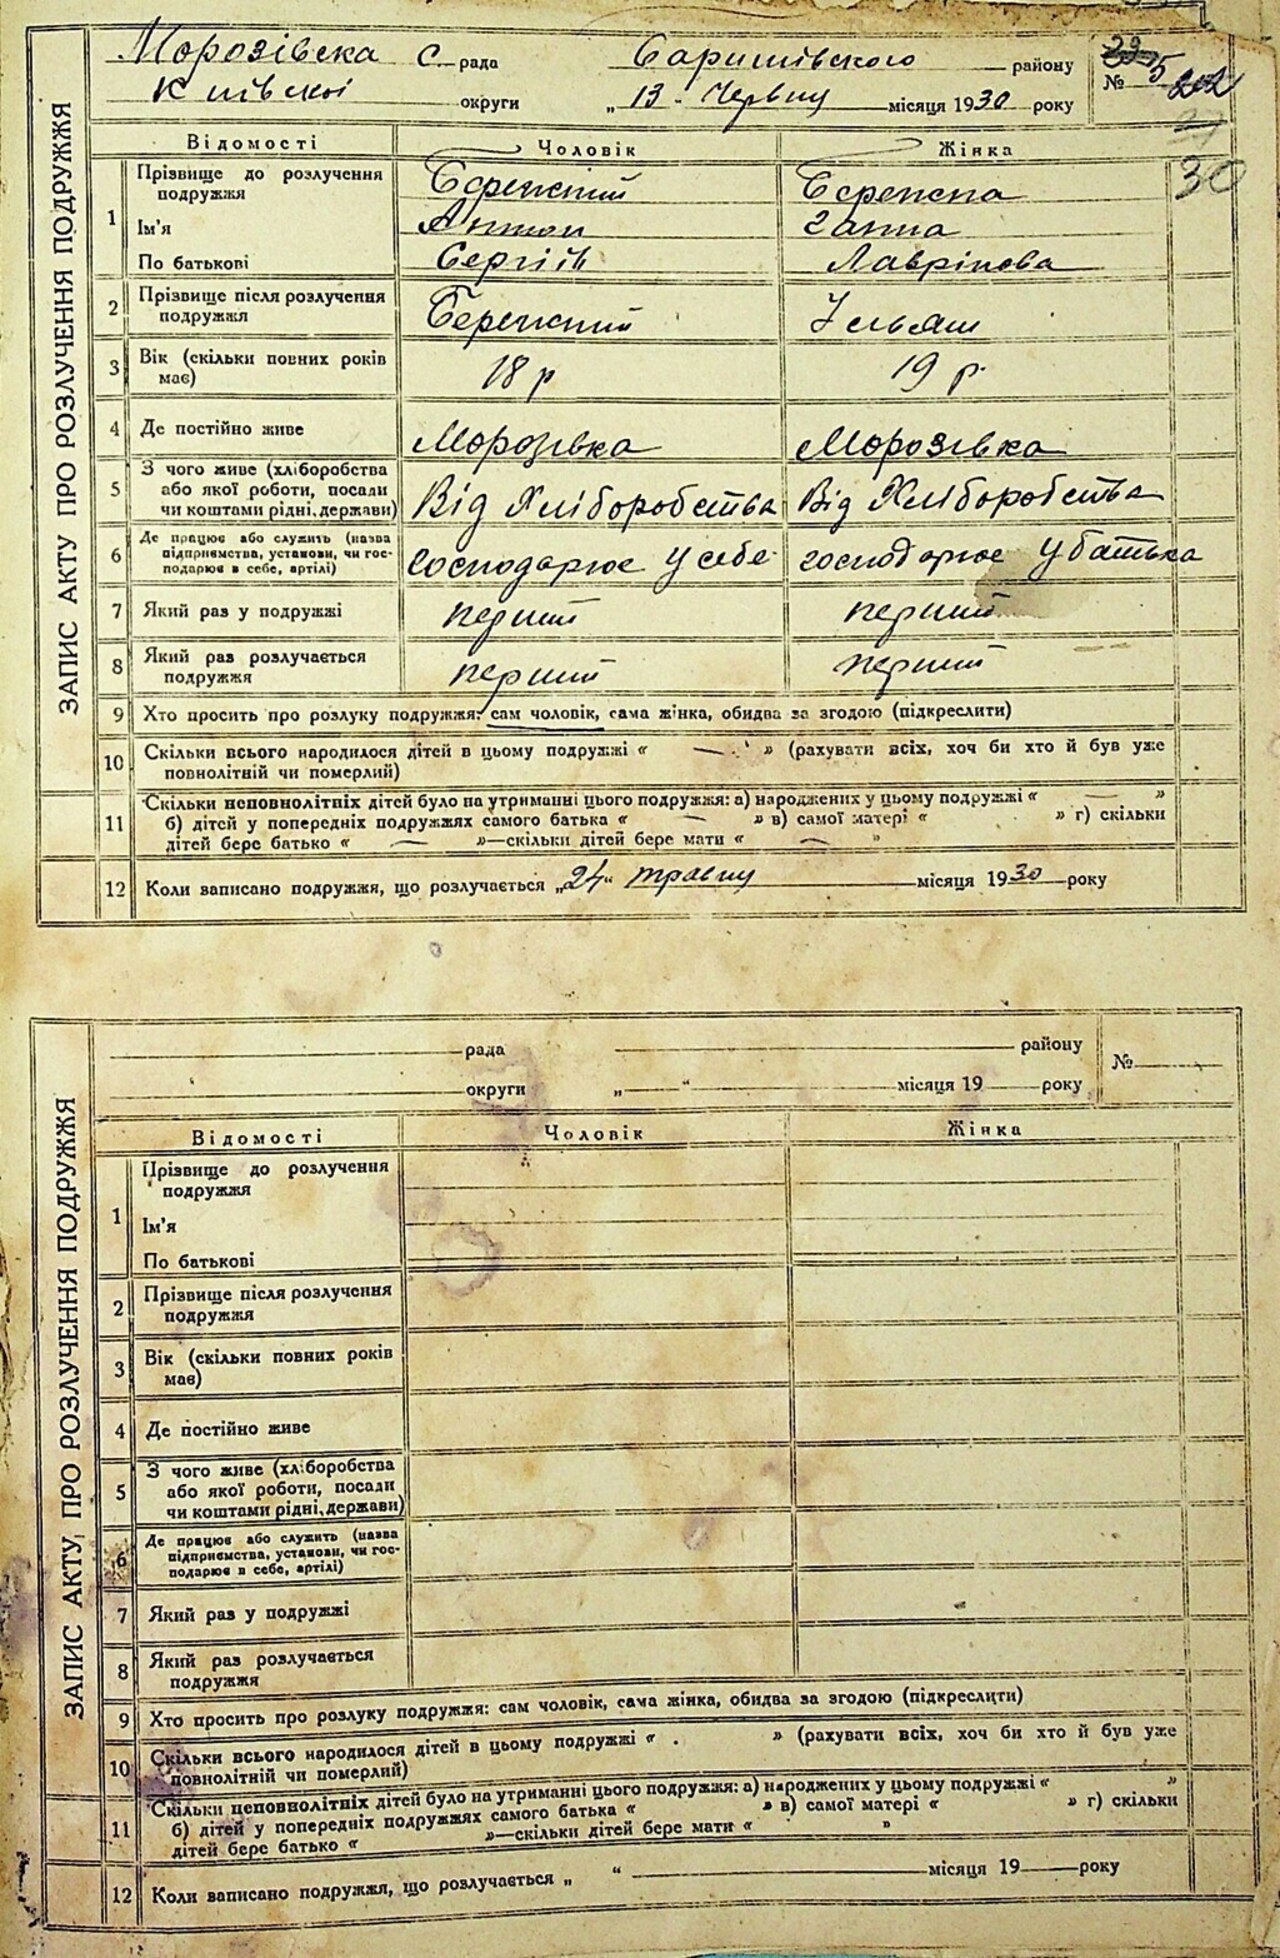 ЗАПИС АКТУ ПРО РОЗЛУЧЕННЯ ПОДРУЖЖЯ
Морозівска с. рада Баришівского району
№ 5
Київскої округи „13" Червня місяця 1930 року
202
30
Відомості Чоловік Жінка
1 Прізвище до розлучення подружжя Бережний
Ім'я Антон Ганна
По батькові Сергіїв Лаврінова
2 Прізвище після розлучення подружжя Бережний Ульяш
3 Вік (скільки повних років має) 18 р 19 р.
4 Де постійно живе Морозівка Морозівка
5 З чого живе (хліборобства або якої роботи, посади чи коштами рідні, держави) Від Хліборобства Від Хліборобства
6 Де працює або служить (назва підприємства, установи, чи господарює в себе, артілі) господарює у себе господарює у батька
7 Який раз у подружжі перший перший
8 Який раз розлучається подружжя перший перший
9 Хто просить про розлуку подружжя: сам чоловік, сама жінка, обидва за згодою (підкреслити)
10 Скільки всього народилося дітей в цьому подружжі « — » (рахувати всіх, хоч би хто й був уже
повнолітній чи померлий)
11 Скільки неповнолітніх дітей було на утриманні цього подружжя: а) народжених у цьому подружжі « — »
б) дітей у попередніх подружжях самого батька « — » в) самої матері « » г) скільки
дітей бере батько « — »—скільки дітей бере мати « — »
12 Коли записано подружжя, що розлучається „24" травня місяця 1930 року
ЗАПИС АКТУ ПРО РОЗЛУЧЕННЯ ПОДРУЖЖЯ
рада району
№
округи „ " місяця 19 року
Відомості Чоловік Жінка
1 Прізвище до розлучення подружжя
Ім'я
По батькові
2 Прізвище після розлучення подружжя
3 Вік (скільки повних років має)
4 Де постійно живе
5 З чого живе (хліборобства або якої роботи, посади чи коштами рідні, держави)
6 Де працює або служить (назва підприємства, установи, чи господарює в себе, артілі)
7 Який раз у подружжі
8 Який раз розлучається подружжя
9 Хто просить про розлуку подружжя: сам чоловік, сама жінка, обидва за згодою (підкреслити)
10 Скільки всього народилося дітей в цьому подружжі « » (рахувати всіх, хоч би хто й був уже
повнолітній чи померлий)
11 Скільки неповнолітніх дітей було на утриманні цього подружжя: а) народжених у цьому подружжі « »
б) дітей у попередніх подружжях самого батька « » в) самої матері « » г) скільки
дітей бере батько « »—скільки дітей бере мати « »
12 Коли записано подружжя, що розлучається „ " місяця 19 року